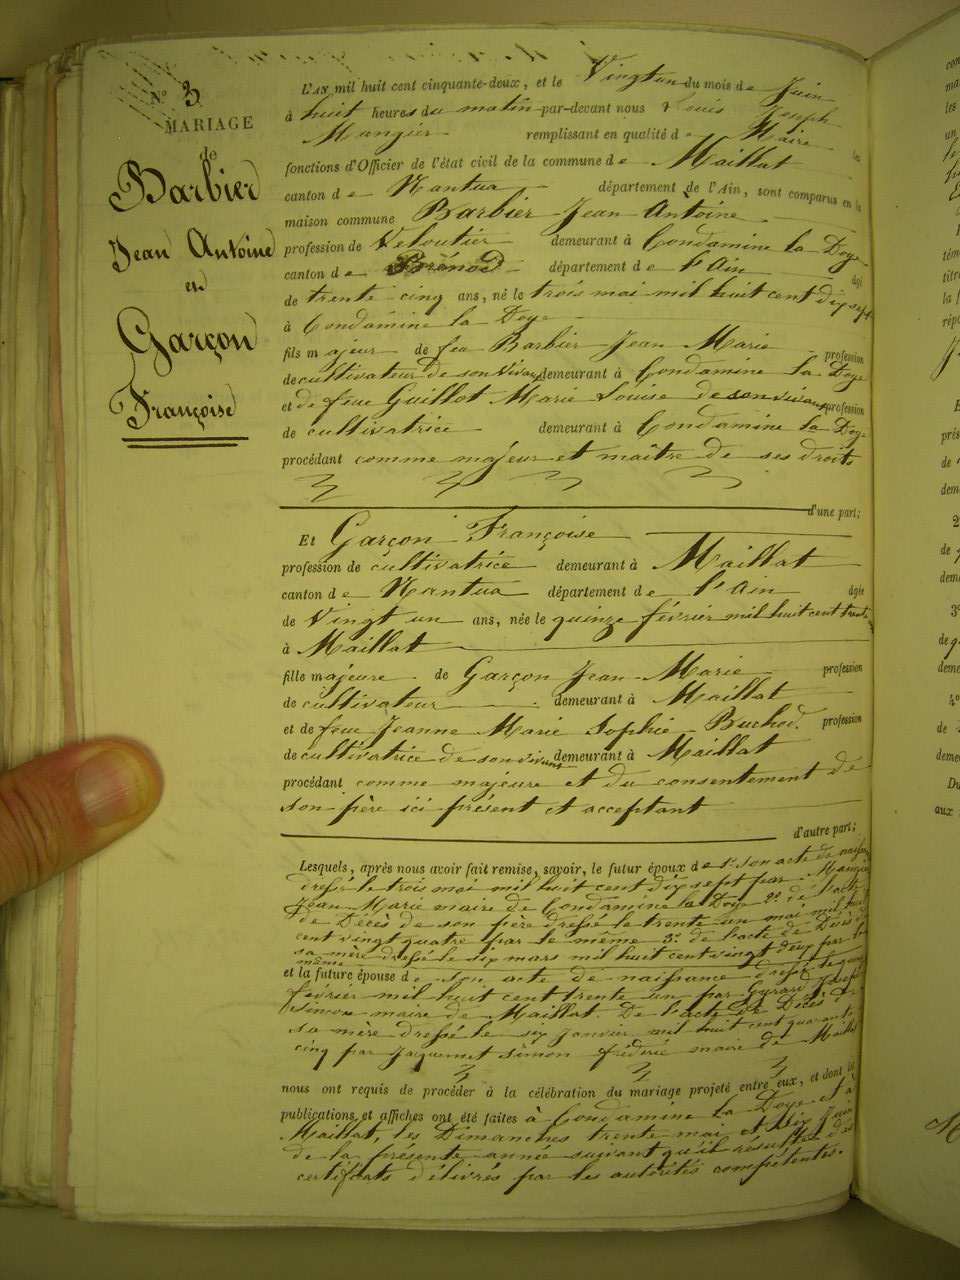 N° 3
MARIAGE
de
Barbier
Jean Antoine
et
Garçon
Françoise
L'AN mil huit cent cinquante-deux, et le Vingt un du mois de Juin
à huit heures du matin par-devant nous Louis Joseph
Mangier remplissant en qualité de Maire les
fonctions d'Officier de l'état civil de la commune de Maillat
canton de Nantua département de l'Ain, sont comparus en la
maison commune Barbier Jean Antoine
profession de Veloutier demeurant à Condamine la Doye
canton de Brénod département de l'Ain âgé
de trente cinq ans, né le trois mai mil huit cent dix sept
à Condamine la Doye
fils majeur de feu Barbier Jean Marie profession
de cultivateur de son vivant demeurant à Condamine la Doye
et de feue Guillot Marie Louise de son vivant profession
de cultivatrice demeurant à Condamine la Doye
procédant comme majeur et maître de ses droits
d'une part;
Et Garçon Françoise
profession de cultivatrice demeurant à Maillat
canton de Nantua département de l'Ain âgée
de Vingt un ans, née le quinze février mil huit cent trente
à Maillat
fille majeure de Garçon Jean Marie profession
de cultivateur demeurant à Maillat
et de feue Jeanne Marie Sophie Buchod profession
de cultivatrice de son vivant demeurant à Maillat
procédant comme majeure et du consentement de
son père ici présent et acceptant
d'autre part;
Lesquels, après nous avoir fait remise, savoir, le futur époux de 1° son acte de
dressé le trois mai mil huit cent dix sept par
Jean Marie maire de Condamine la Doye 2° de l'acte
de Décès de son père dressé le trente un mai mil huit
cent vingt quatre par le même 3° de l'acte de Décès de
sa mère dressé le six mars mil huit cent vingt deux par le
même
et la future épouse de son acte de naissance dressé le
février mil huit cent trente un par Gyrard Joseph
Simon maire de Maillat. De l'acte de Décès de
sa mère dressé le six Janvier mil huit cent quarante
cinq par Jacquemet Simon frédéric maire de Maillat
nous ont requis de procéder à la célébration du mariage projeté entre eux, et dont les
publications et affiches ont été faites à Condamine la Doye et à
Maillat, les Dimanches trente mai et six Juin
de la présente année suivant qu'il résulte des
certificats délivrés par les autorités compétentes.